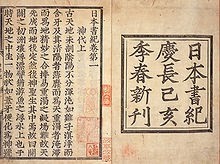 日本書紀
慶長己亥
季春新刊
日本書紀卷第一
神代上
古天地未剖陰陽不分渾沌如鷄子溟涬
而含牙及其清陽者薄靡而爲天重濁者淹滯
而爲地精妙之合搏易重濁之凝場難故天
先成而地後定然後神聖生其中焉故曰開
闢之初洲壤浮漂譬猶游魚之浮水上也于
時天地之中生一物狀如葦牙便化爲神